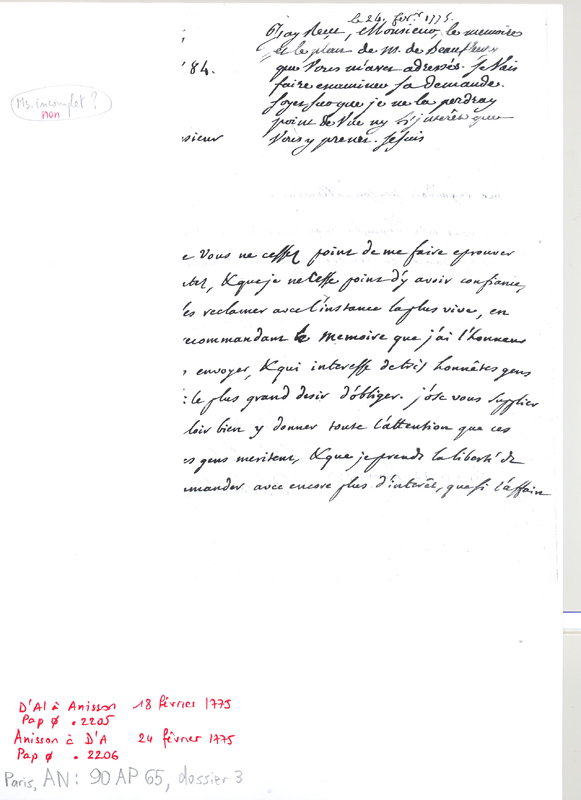 le 24. fev.er 1775.
J'ay Reçu, Monsieur, le memoire
et le plan de M. de Beaufleury
que Vous m'avez adressés. Je Vais
faire examiner sa demande.
Soyez sur que je ne la perdray
point de Vue ny l'interêt que
Vous y prenez. Je suis
84.
Ms. incomplet ?
non
sieur
e Vous ne cessez point de me faire eprouver
, & que je ne Cesse point d'y avoir confiance,
es reclamer avec l'instance la plus vive, en
ecommandant le Memoire que j'ai l'honneur
envoyer, & qui interesse de très honnêtes gens
: le plus grand desir d'obliger. j'ôse vous supplier
loir bien y donner toute l'attention que ces
es gens meritent, & que je prends la liberté de
mmander avec encore plus d'interêt, que si l'affair
D'Al à Anisson 18 février 1775
Pap Ø . 2205
Anisson à D'A 24 février 1775
Pap Ø . 2206
Paris, AN : 90 AP 65, dossier 3